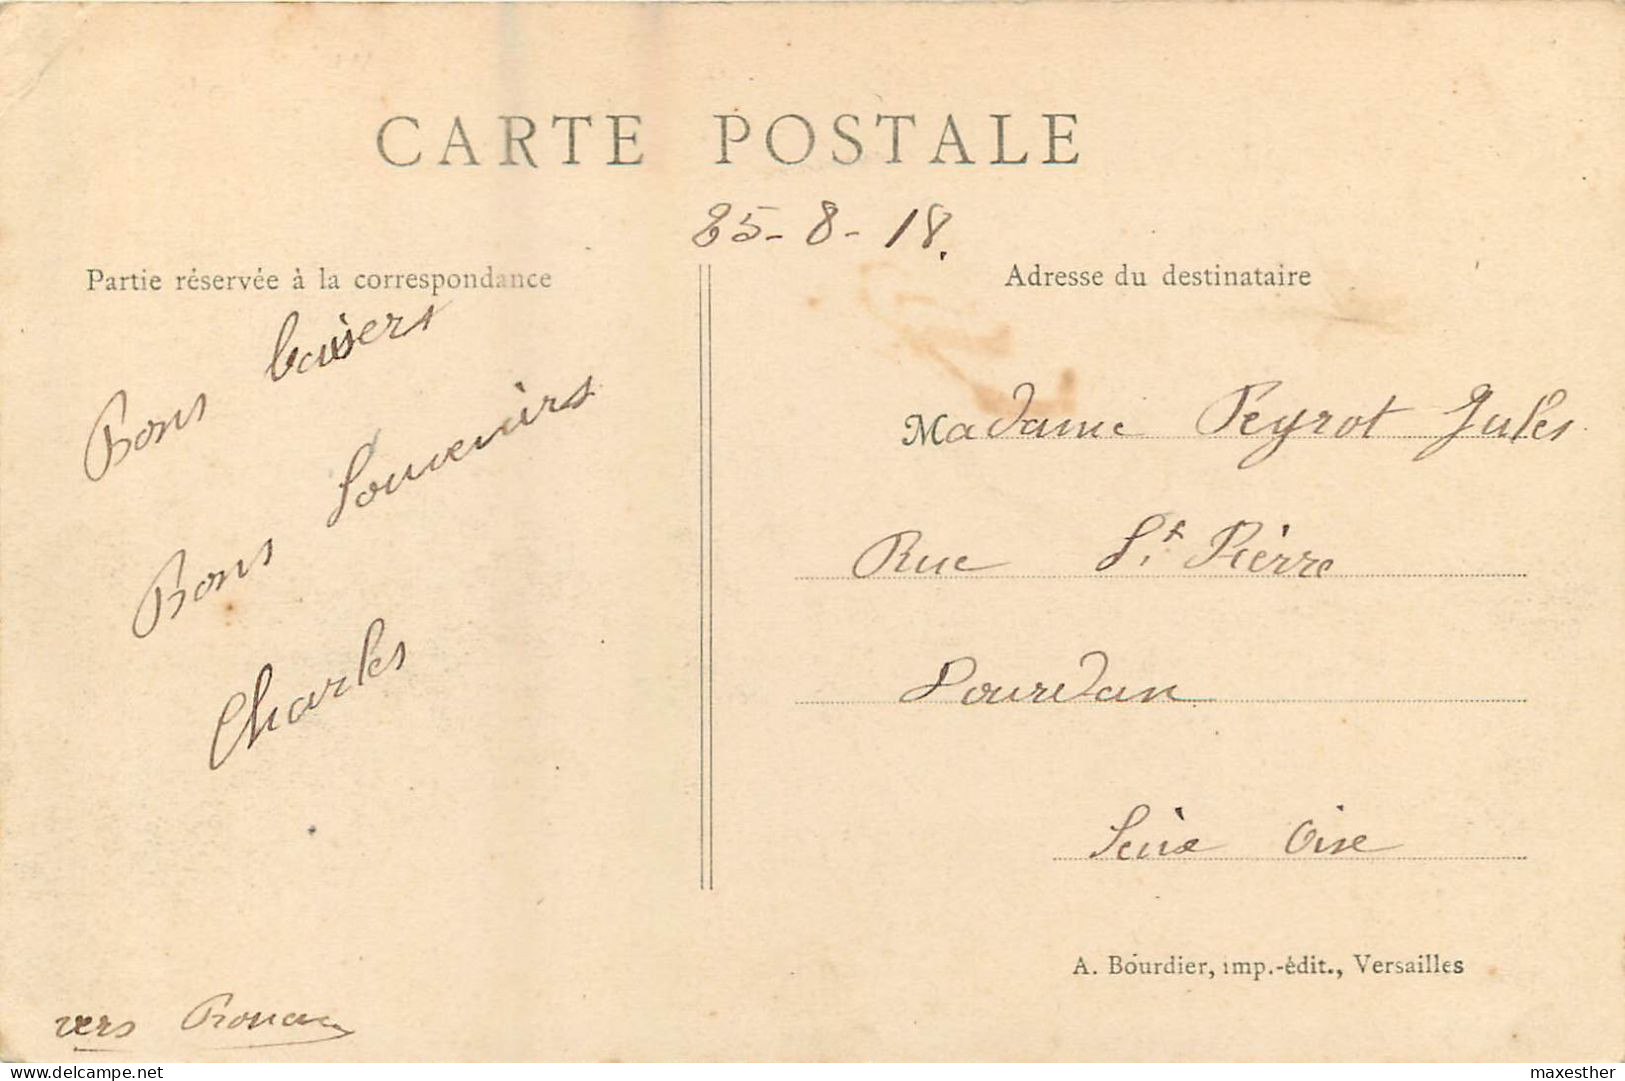 CARTE POSTALE
25-8-18.
Partie réservée à la correspondance
Bons baisers
Bons Souvenirs
Charles
vers
Adresse du destinataire
Madame Peyrot Jules
Rue St Pierre
Dourdan
Seine Oise
A. Bourdier, imp.-édit., Versailles
delcampe.net
maxesther